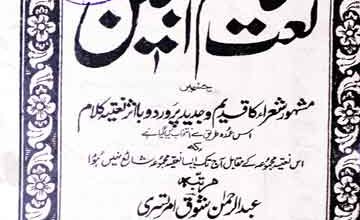 جسمیں
مشہور شعراء کا قدیم و جدید پر درد و با اثر نعتیہ کلام
اس عمدہ طریق سے انتخاب کیا گیا ہے
کہ
اس نعتیہ مجموعہ کے مقابل آج تک ایسا نعتیہ مجموعہ شائع نہیں ہوا
مرتبہ
عبدالرحمٰن شوق امرتسری